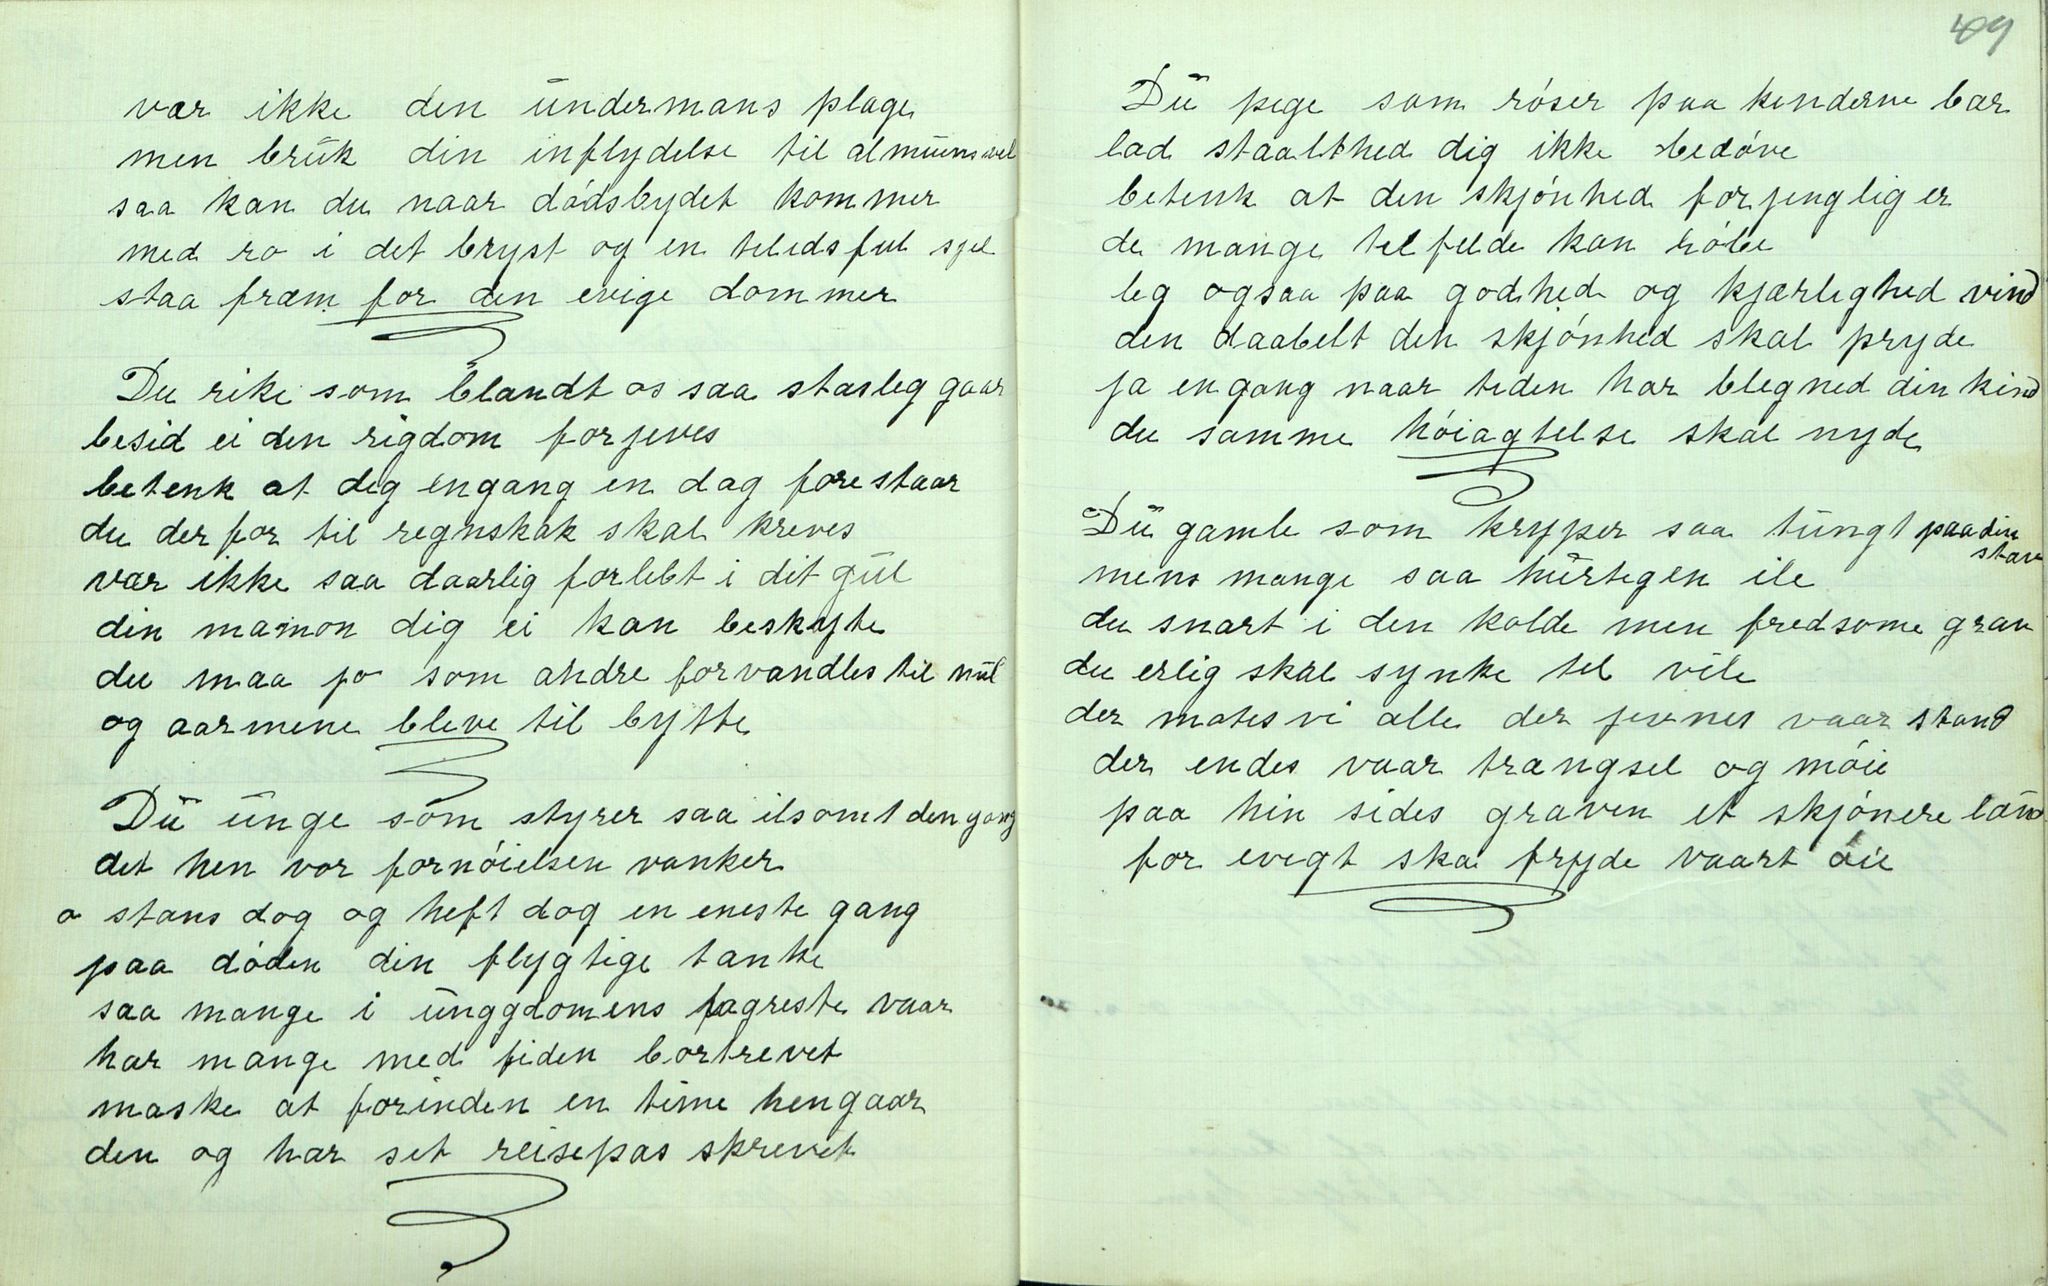 var ikke den undermans plage
men bruk din inflydelse til almuens vel
saa kan du naar dódsbydet kommer
med ro i det bryst og en telidsful sjel
staa fræm for den evige dommer
Du rike som blandt os saa stasleg gaar
besid ei den rigdom forjeves
betenk at dig engang en dag forestaar
du derfor til regnskak skal kreves
vær ikke saa daarlig forlebt i dit gul
din mamon dig ei kan beskyte
du maa jo som andre forvandles til mul
og aarmene bleve til bytte
Du unge som styrer saa ilsomt den gang
det hen vor fornóielsen vanker
o stans dog og heft dog en eneste gang
paa dóden din flygtige tanke
saa mange i unggdomens fagreste vaar
har mange med fiden bortrevet
maske at forinden en time hengaar
den og har set reisepas skrevet
49
Du pege som róser paa kenderne bar
lad staalthed dig ikke bedóve
betenk at den skjónhed forjenglig er
de mange telfelde kan róbe
leg ogsaa paa godhed og kjærleghed vind
den daabelt den skjónhed skal pryde
ja engang naar teden har blegned din kind
du samme hóiagtelse skal nyde
Du gamle som kryper saa tungt paa din stav
mens mange saa hurtegen ile
du snart i den kolde men fredsome grav
du erlig skal synke tel vile
der motes vi alle der jevnes vaar stand
der endes vaar trængsel og móie
paa hin sides graven et skjónere land
for evegt ska fryde vaart óie